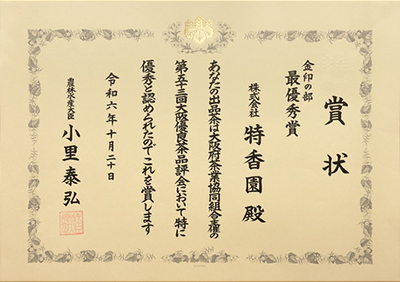 賞状
金印の部
最優秀賞
株式会社 特香園 殿
あなたの出品茶は大阪府茶業協同組合主催の
第五十三回大阪優良茶品評会において特に
優秀と認められたのでこれを賞します
令和六年十月二十日
農林水産大臣 小里泰弘